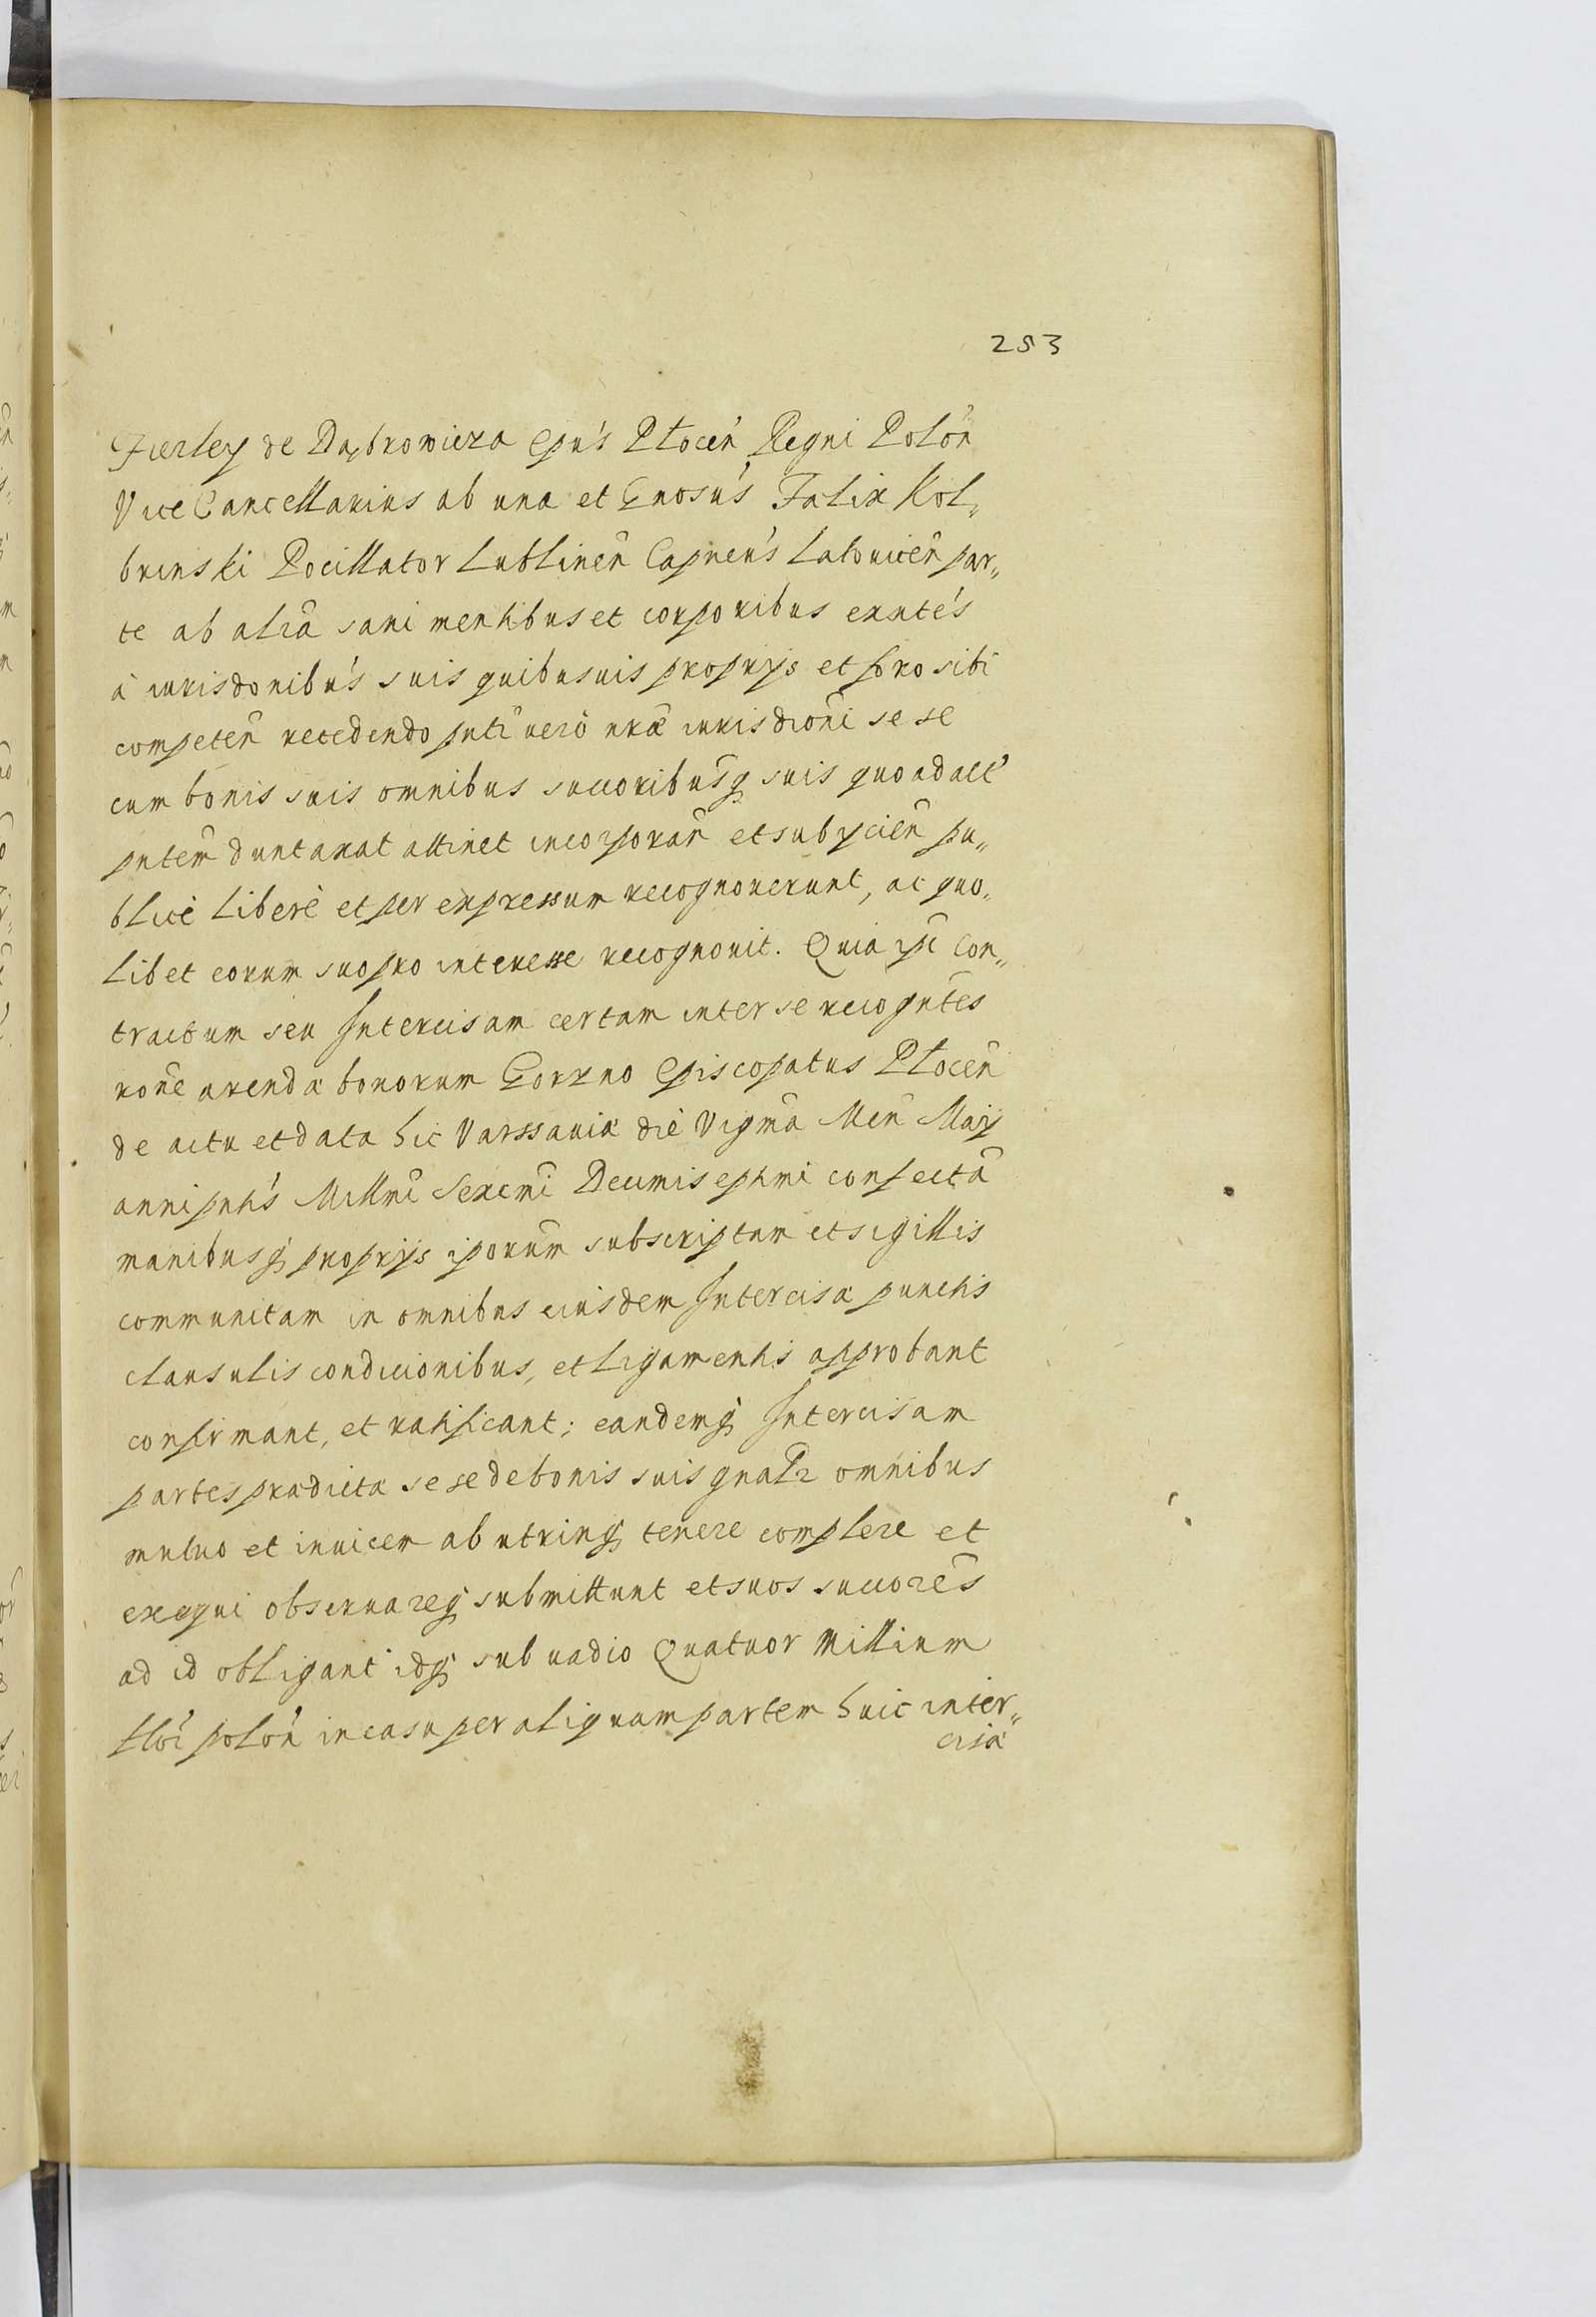 253
Fierley de Dąbrowicza Epu's Plocen̄ Regni Polon̄
Vice Cancellarius ab una et Gnosu's Fælix Kol„
brinski Pocillator Lublinen̄ Capneu's Latouicen̄ par„
te ab alia sani mentibus et corporibus exnte's
à iurisdonibu's suis quibusuis proprijs et foro sibi
competen̄ recedendo pnti uerò nræ iurisdioni se se
cum bonis suis omnibus succoribusq suis quo ad act
pntem duntaxat attinet incorporan̄ et subijcien̄ pu„
blicè liberè et per expressum recognouerunt, ac quo„
libet eorum suo pro interesse recognouit. Quia ipi Con„
tractum seu Intercisam certam inter se recogntes
rone arendæ bonorum Gorzno Episcopatus Plocen̄
de actu et data hic Varssauiæ diè Vigma Men̄ Maij
anni pnti's Millmi Sexcmi Decimiseptmi confectā
manibusq proprijs iporum subscriptam et sigillis
communitam in omnibus eiusdem Intercisæ punctis
clausulis condicionibus, et ligamentis approbant
confirmant, et ratificant; eandemq Intercisam
partes prædictæ se se de bonis suis gnalr omnibus
mutuo et inuicem ab utrinq tenere complere et
exequi obseruareq submittunt et suos succores
ad id obligant idq sub uadio Quatuor Millium
flor polon̄ in casu per aliquam partem huic inter„
cisæ